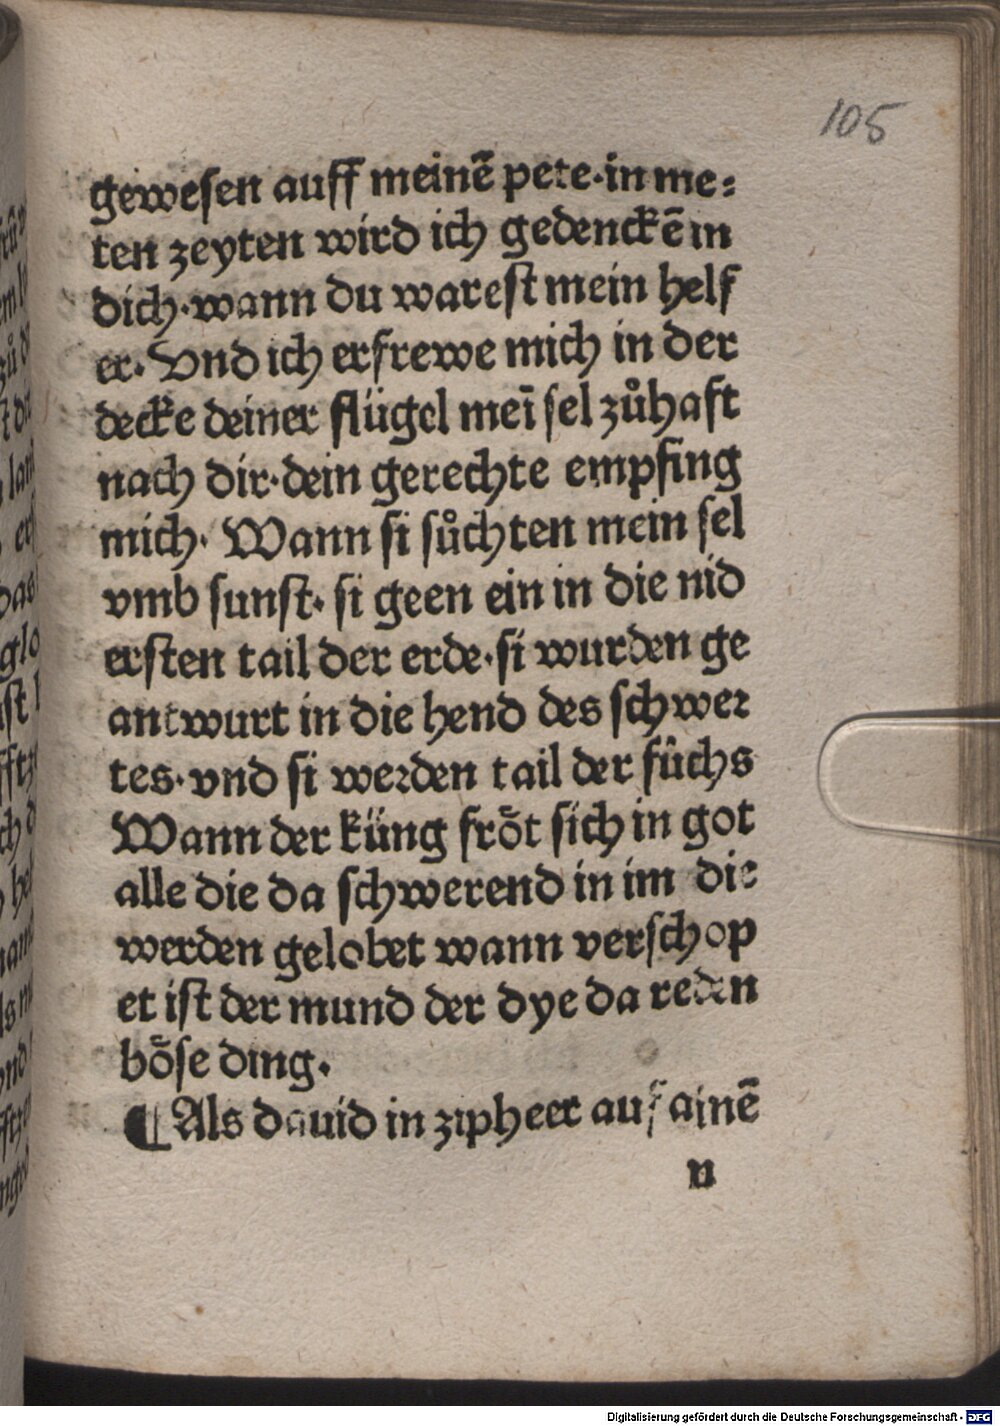 105
gewesen auff meinē pete·in me⸗
ten zeyten wird ich gedenckē in
dich·wann du warest mein helf
er· Vnd ich erfrewe mich in der
decke deiner flügel mei̅ sel zůhaft
nach dir·dein gerechte empfing
mich· Wann si sůchten mein sel
vmb sunst· si geen ein in die nid
ersten tail der erde·si wurden ge
antwurt in die hend des schwer
tes·vnd si werden tail der fûchs
Wann der küng frôt sich in got
alle die da schwerend in im die
werden gelobet wann verschop
et ist der mund der dye da reden
bôse ding·
¶ Als dauid in zipheer auf ainē
n
Digitalisierung gefördert durch die Deutsche Forschungsgemeinschaft - DFG